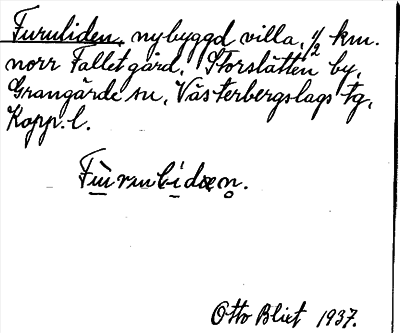 Furuliden, nybyggd villa, 1/2 km.
norr Fallet gård, Storslätten by,
Grangärde sn, Västerbergslags tg,
Kopp. l.
Otto Blixt 1937.